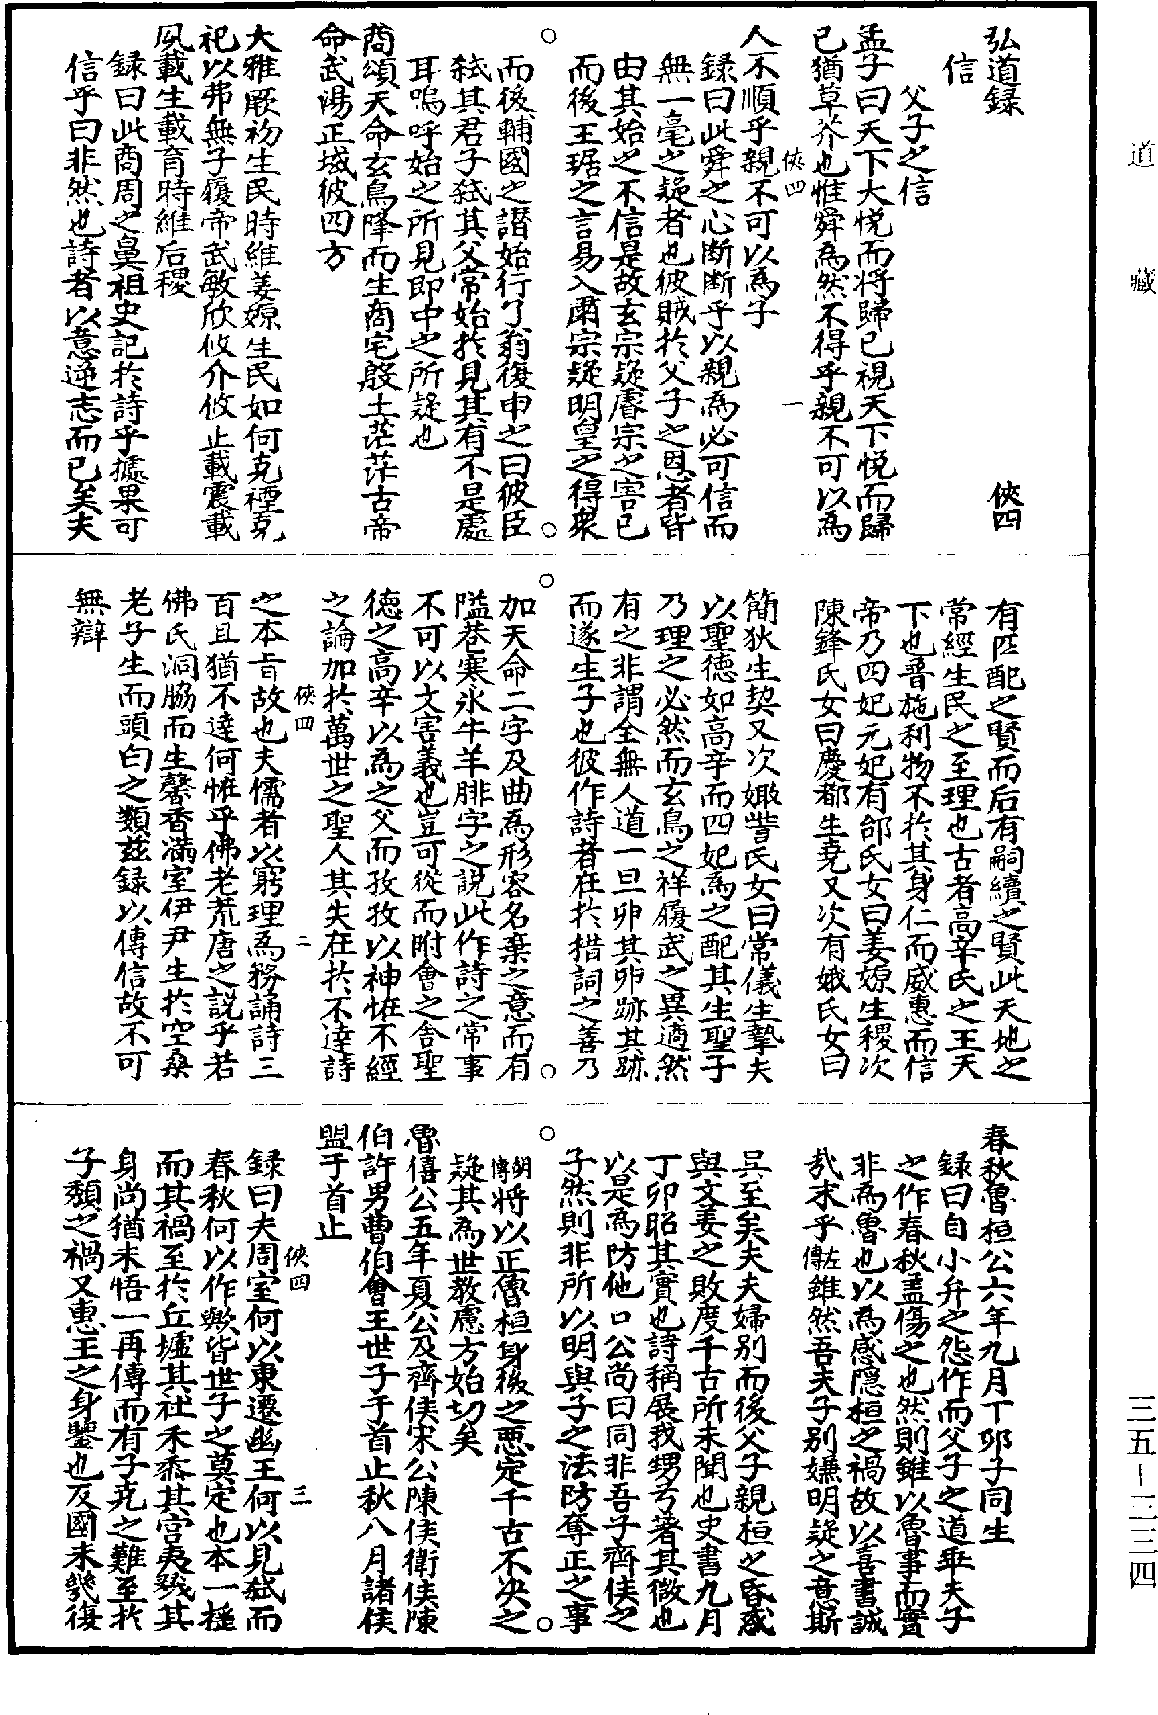 道藏
弘道録　俠四
信
父子之信
孟子曰天下大悦而将歸己視天下悦而歸
己猶草芥也惟舜為然不得乎親不可以為
俠四　一
人不順乎親不可以為子
録曰此舜之心断断乎以親為必可信而
無一毫之疑者也彼賊於父子之恩者皆
由其始之不信是故玄宗疑睿宗之害已
而後王琚之言易入肅宗疑明皇之得衆
而後輔國之譖始行了翁復申之曰彼臣
弑其君子弑其父常始於見其有不是處
耳嗚呼始之所見即中之所疑也
商頌天命玄鳥降而生商宅殷土茫茫古帝
命武湯正域彼四方
大雅厥初生民時維姜嫄生民如何克禋克
祀以弗無子履帝武敏欣攸介攸止載震載
夙載生載育時維后稷
録曰此商周之鼻祖史記於詩乎據果可
信乎曰非然也詩者以意逆志而已矣夫
有匹配之賢而后有嗣續之賢此天地之
常經生民之至理也古者高辛氏之王天
下也普施利物不於其身仁而威惠而信
帝乃四妃元妃有邰氏女曰姜嫄生稷次
陳鋒氏女曰慶都生堯又次有娥氏女曰
簡狄生契又次娵訾氏女曰常儀生摯夫
以聖徳如高辛而四妃為之配其生聖子
乃理之必然而玄鳥之祥履武之異適然
有之非謂全無人道一旦卵其卵跡其跡
而遂生子也彼作詩者在於措詞之善乃
加天命二字及曲為形容名棄之意而有
隘巷寒氷牛羊腓字之説此作詩之常事
不可以文害義也豈可從而附會之舎聖
徳之高辛以為之父而孜孜以神恠不經
之論加於萬世之聖人其失在於不達詩
俠四　二
之本旨故也夫儒者以窮理為務誦詩三
百且猶不達何恠乎佛老荒唐之説乎若
佛氏洞脇而生馨香滿室伊尹生於空桑
老子生而頭白之類兹録以傳信故不可
無辯
春秋魯桓公六年九月丁卯子同生
録曰自小弁之怨作而父子之道乖夫子
之作春秋盖傷之也然則雖以魯事而實
非為魯也以為感隱桓之禍故以喜書誠
哉末乎左傳雖然吾夫子别嫌明疑之意斯
其至矣夫夫婦别而後父子親桓之昏惑
與文姜之敗度千古所未聞也史書九月
丁卯昭其實也詩稱展我甥兮著其微也
以是為防他口公尚曰同非吾子齊侯之
子然則非所以明與子之法防奪正之事
胡傳將以正魯桓身後之惡定千古不决之
疑其為世教慮方始切矣
魯僖公五年夏公及齊侯宋公陳侯衛侯陳
伯許男曹伯會王世子于首止秋八月諸侯
盟于首止
俠四　三
録曰夫周室何以東遷幽王何以見弑而
春秋何以作歟皆世子之莫定也本一摇
而其禍至於丘墟其社禾黍其宫夷殘其
身尚猶未悟一再傳而有子克之難至於
子頽之禍又惠王之身鑒也反國未幾復
三五-三三四